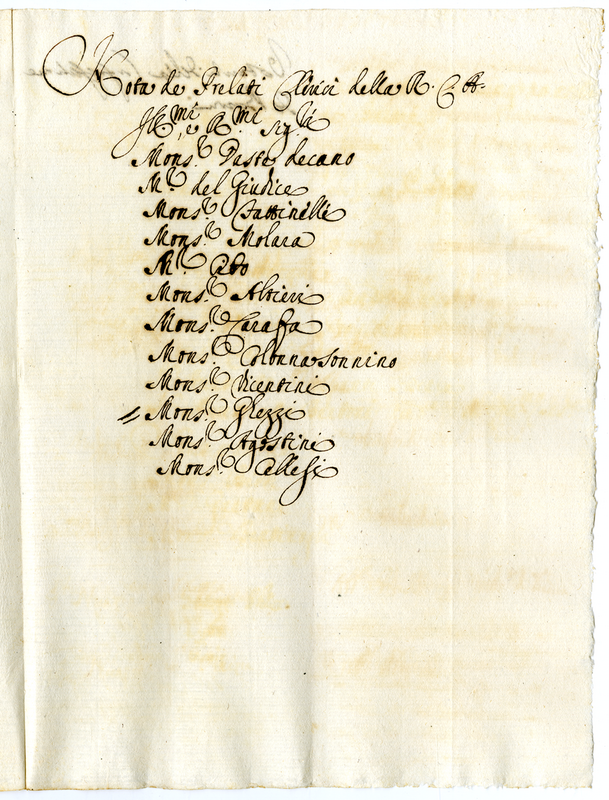 Nota de Prelati Clerici della R. C. A.
Ill.mi, e R.mi Sig.ri
Mons.r Paste decano
M.r del Giudice
Mons.r Fattinelli
Mons.r Molara
M.r Cibo
Mons.r Altieri
Mons.r Carafa
Mons.r Colonna Sonnino
Mons.r Vicentini
// Mons.r Ghezzi
Mons.r Agostini
Mons.r